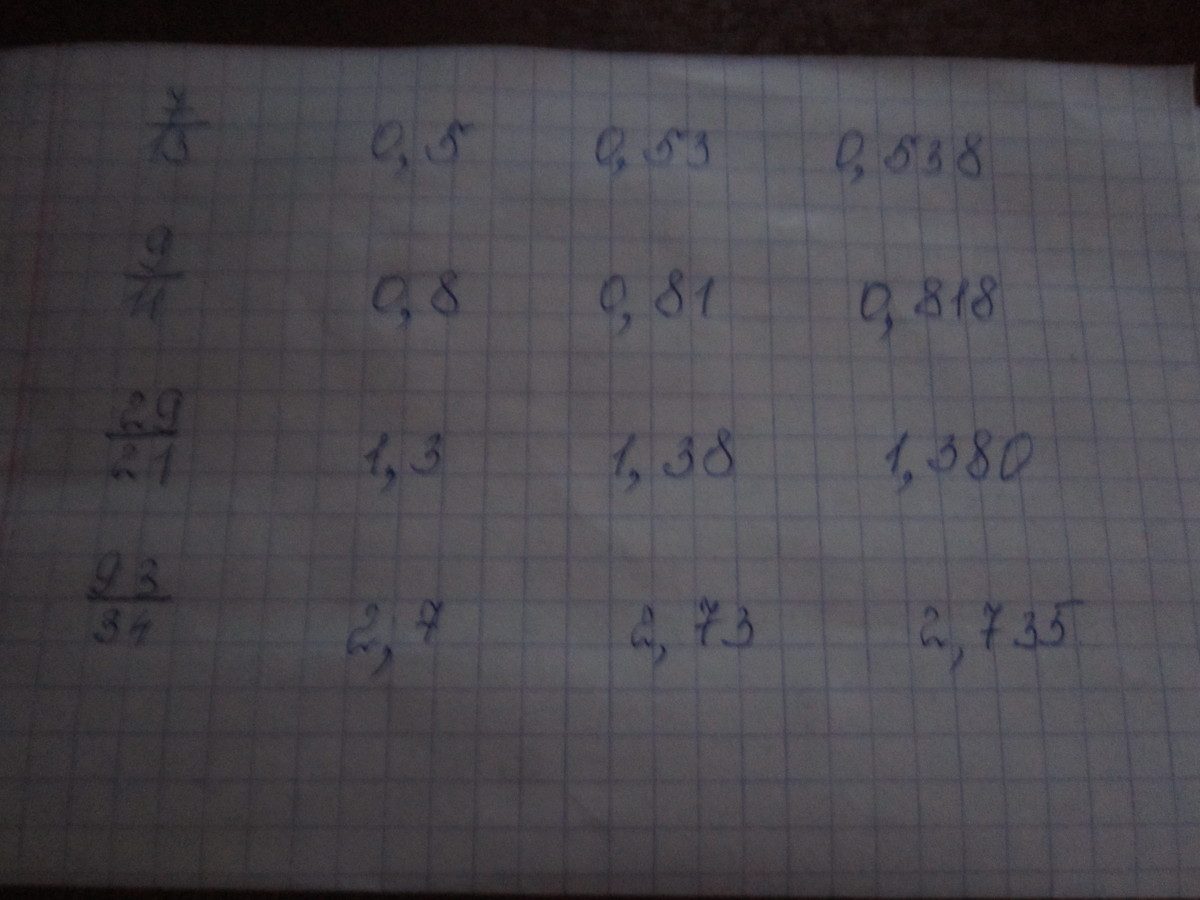 7/13 0,5 0,53 0,538
9/11 0,8 0,81 0,818
29/21 1,3 1,38 1,380
93/34 2,7 2,73 2,735